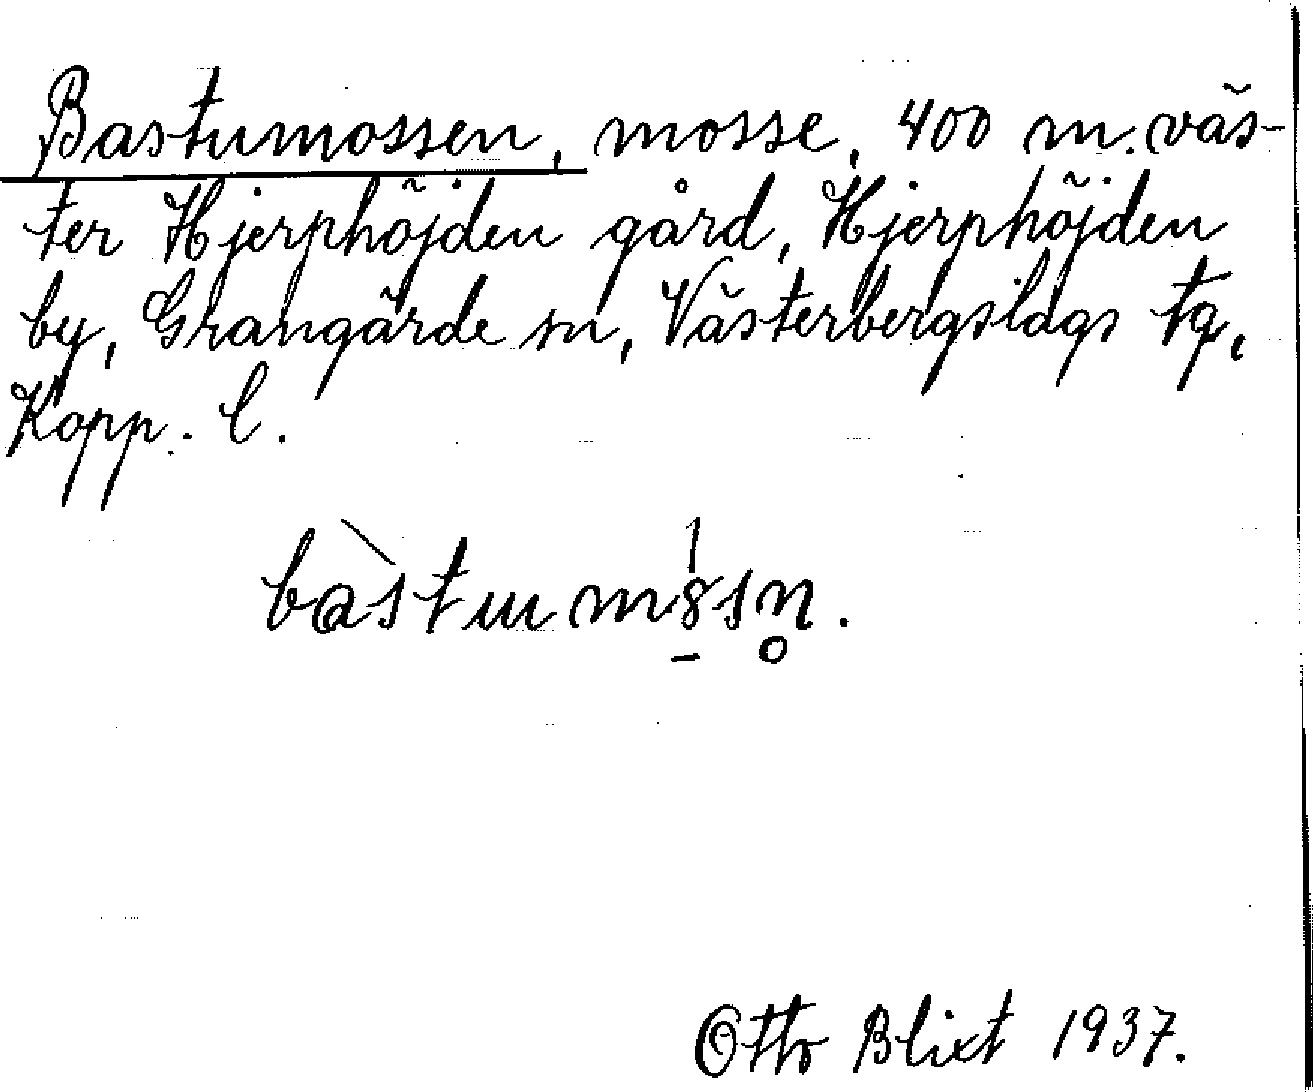 Bastumossen, mosse, 400 m. väs-
ter Hjerphöjden gård, Hjerphöjden
by, Grangärde sn, Västerbergslags tg,
Kopp. l.
bàstumȣsn̥.
Otto Blixt 1937.